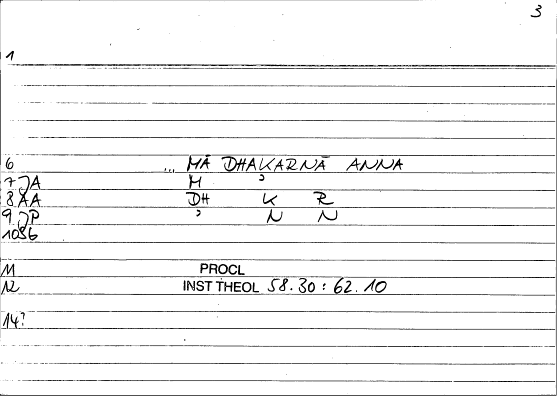 3
1
6 ... MĀ DHAKARNĀ ANNA
7 JA M ʾ
8 AA DH K R
9 JP ʾ N N
10 S6
11 PROCL
12 INST THEOL 58.30 : 62.10
14?